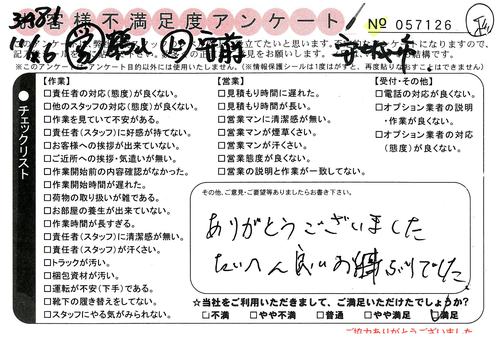 お客様不満足度アンケート
No 057126
※このアンケートはアンケート目的以外には使用いたしません。(※情報保護シールは1度はがすと、再度貼りなおすことはできません)
チェックリスト
【作業】
□責任者の対応(態度)が良くない。
□他のスタッフの対応(態度)が良くない。
□作業を見ていて不安がある。
□責任者(スタッフ)に好感が持てない。
□お客様への挨拶が出来ていない。
□ご近所への挨拶・気遣いが無い。
□作業開始前の内容確認がなかった。
□作業開始時間が遅れた。
□荷物の取り扱いが雑である。
□お部屋の養生が出来ていない。
□作業時間が長すぎる。
□責任者(スタッフ)に清潔感が無い。
□責任者(スタッフ)が汗くさい。
□トラックが汚い。
□梱包資材が汚い。
□運転が不安(下手)である。
□靴下の履き替えをしてない。
□スタッフにやる気がみられない。
【営業】
□見積もり時間に遅れた。
□見積もり時間が長い。
□営業マンに清潔感が無い。
□営業マンが煙草くさい。
□営業マンが汗くさい。
□営業態度が良くない。
□営業の説明と作業が一致してない。
【受付・その他】
□電話の対応が良くない。
□オプション業者の説明
・作業が良くない。
□オプション業者の対応
(態度)が良くない。
その他、ご意見・ご要望等ありましたらお書き下さい。
ありがとうございました
たいへん良いお
ぶりでした
☆当社をご利用いただきまして、ご満足いただけたでしょうか?
□不満 □やや不満 □普通 □やや満足 □満足
ご協力ありがとうございました